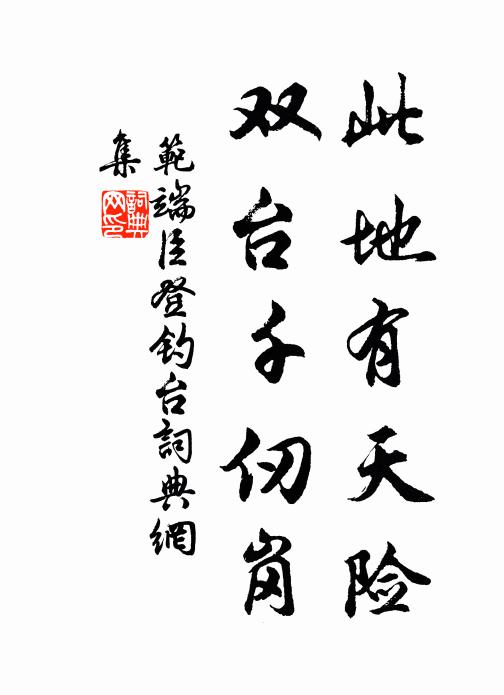 此地有天险
双台千仞岗
範端臣登釣台詞典網
集
詞典
网印